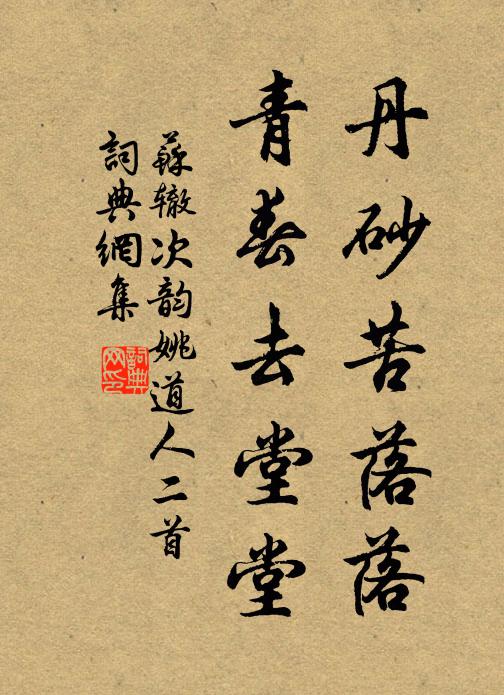 丹砂苦落落
青春去堂堂
蘇辙次韵姚道人二首
詞典網集
詞典网印